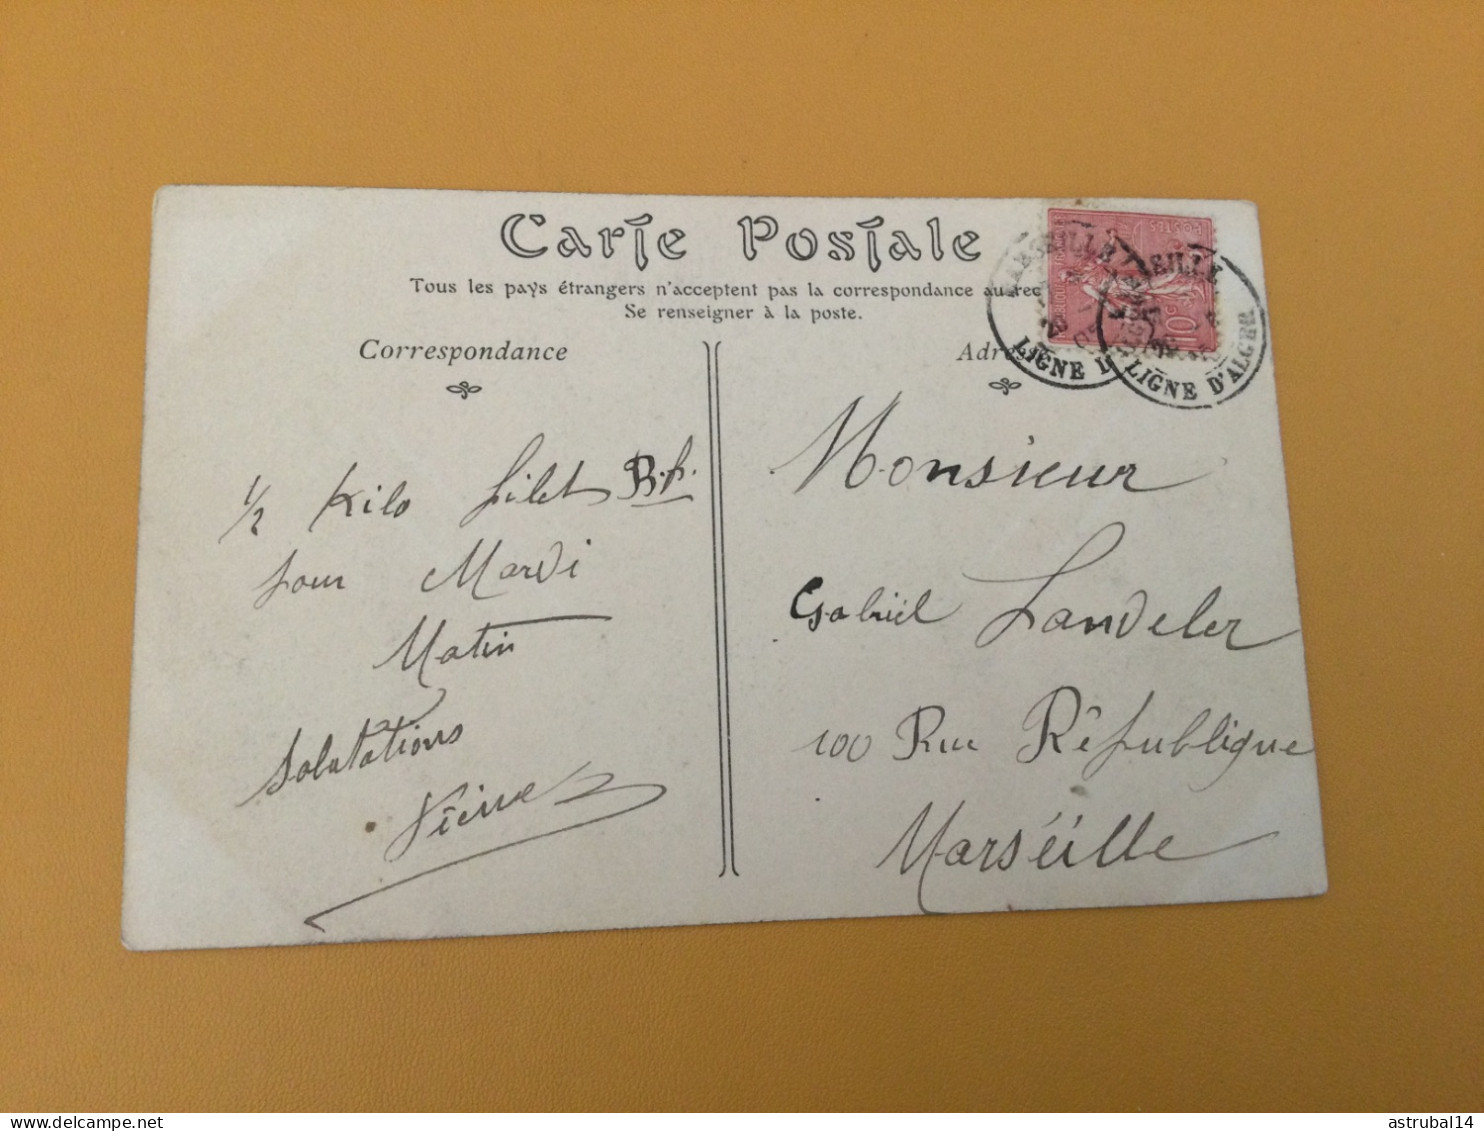 Carte Postale
Tous les pays étrangers n'acceptent pas la correspondance au rec
Se renseigner à la poste.
Correspondance
Adre
MARSEILLE
LIGNE D
SEILLE
LIGNE D'ALGER
POSTES
10
1/2 Kilo filet B.f.
pour Mardi
Matin
Salutations
Monsieur
Gabriel Landeler
100 Rue République
Marséille
astrubal14